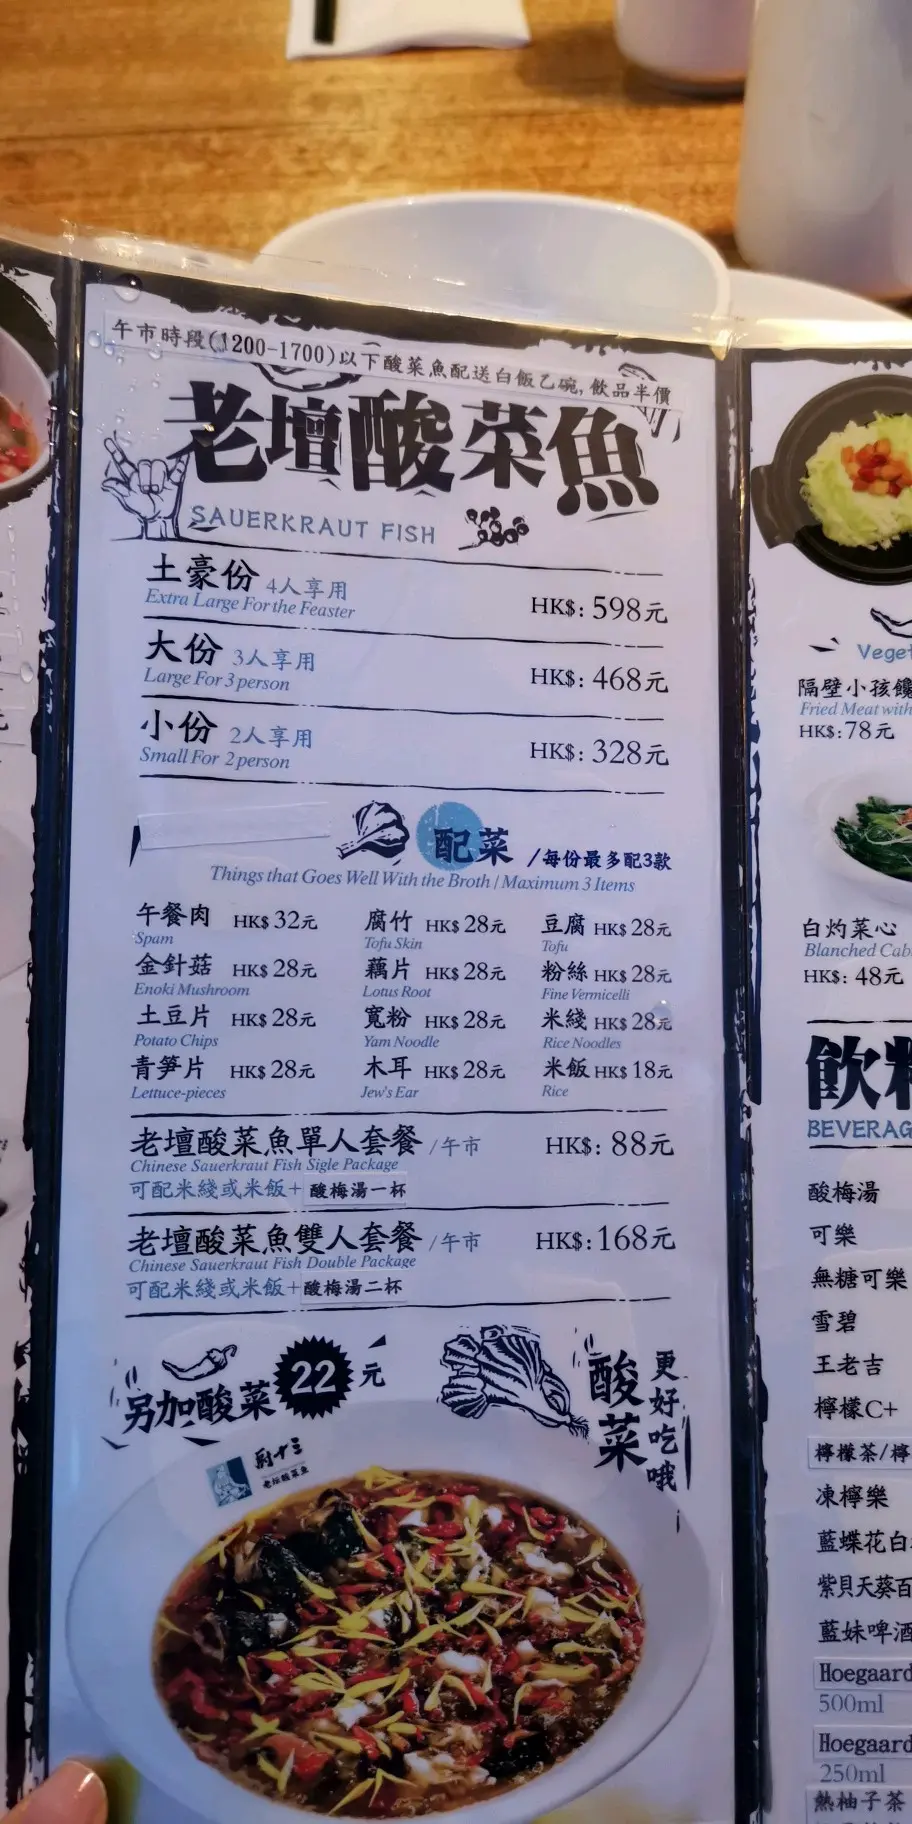 午市時段(1200-1700)以下酸菜魚配送白飯乙碗,飲品半價
老壇酸菜魚
SAUERKRAUT FISH
土豪份 4人享用
Extra Large For the Feaster
HK$: 598元
大份 3人享用
Large For 3 person
HK$: 468元
小份 2人享用
Small For 2 person
HK$: 328元
配菜 /每份最多配3款
Things that Goes Well With the Broth / Maximum 3 Items
午餐肉 HK$ 32元 腐竹 HK$ 28元 豆腐 HK$ 28元
Spam Tofu Skin Tofu
金針菇 HK$ 28元 藕片 HK$ 28元 粉絲 HK$ 28元
Enoki Mushroom Lotus Root Fine Vermicelli
土豆片 HK$ 28元 寬粉 HK$ 28元 米綫 HK$ 28元
Potato Chips Yam Noodle Rice Noodles
青笋片 HK$ 28元 木耳 HK$ 28元 米飯 HK$ 18元
Lettuce-pieces Jew's Ear Rice
老壇酸菜魚單人套餐 /午市 HK$: 88元
Chinese Sauerkraut Fish Sigle Package
可配米綫或米飯+酸梅湯一杯
老壇酸菜魚雙人套餐 /午市 HK$: 168元
Chinese Sauerkraut Fish Double Package
可配米綫或米飯+酸梅湯二杯
另加酸菜 22 元
酸菜
更好吃哦
老坛酸菜鱼
Veget
隔壁小孩饞
Fried Meat with
HK$: 78元
白灼菜心
Blanched Cab
HK$: 48元
飲料
BEVERAG
酸梅湯
可樂
無糖可樂
雪碧
王老吉
檸檬C+
檸檬茶/檸
凍檸樂
藍蝶花白
紫貝天葵百
藍妹啤酒
Hoegaard
500ml
Hoegaard
250ml
熱柚子茶